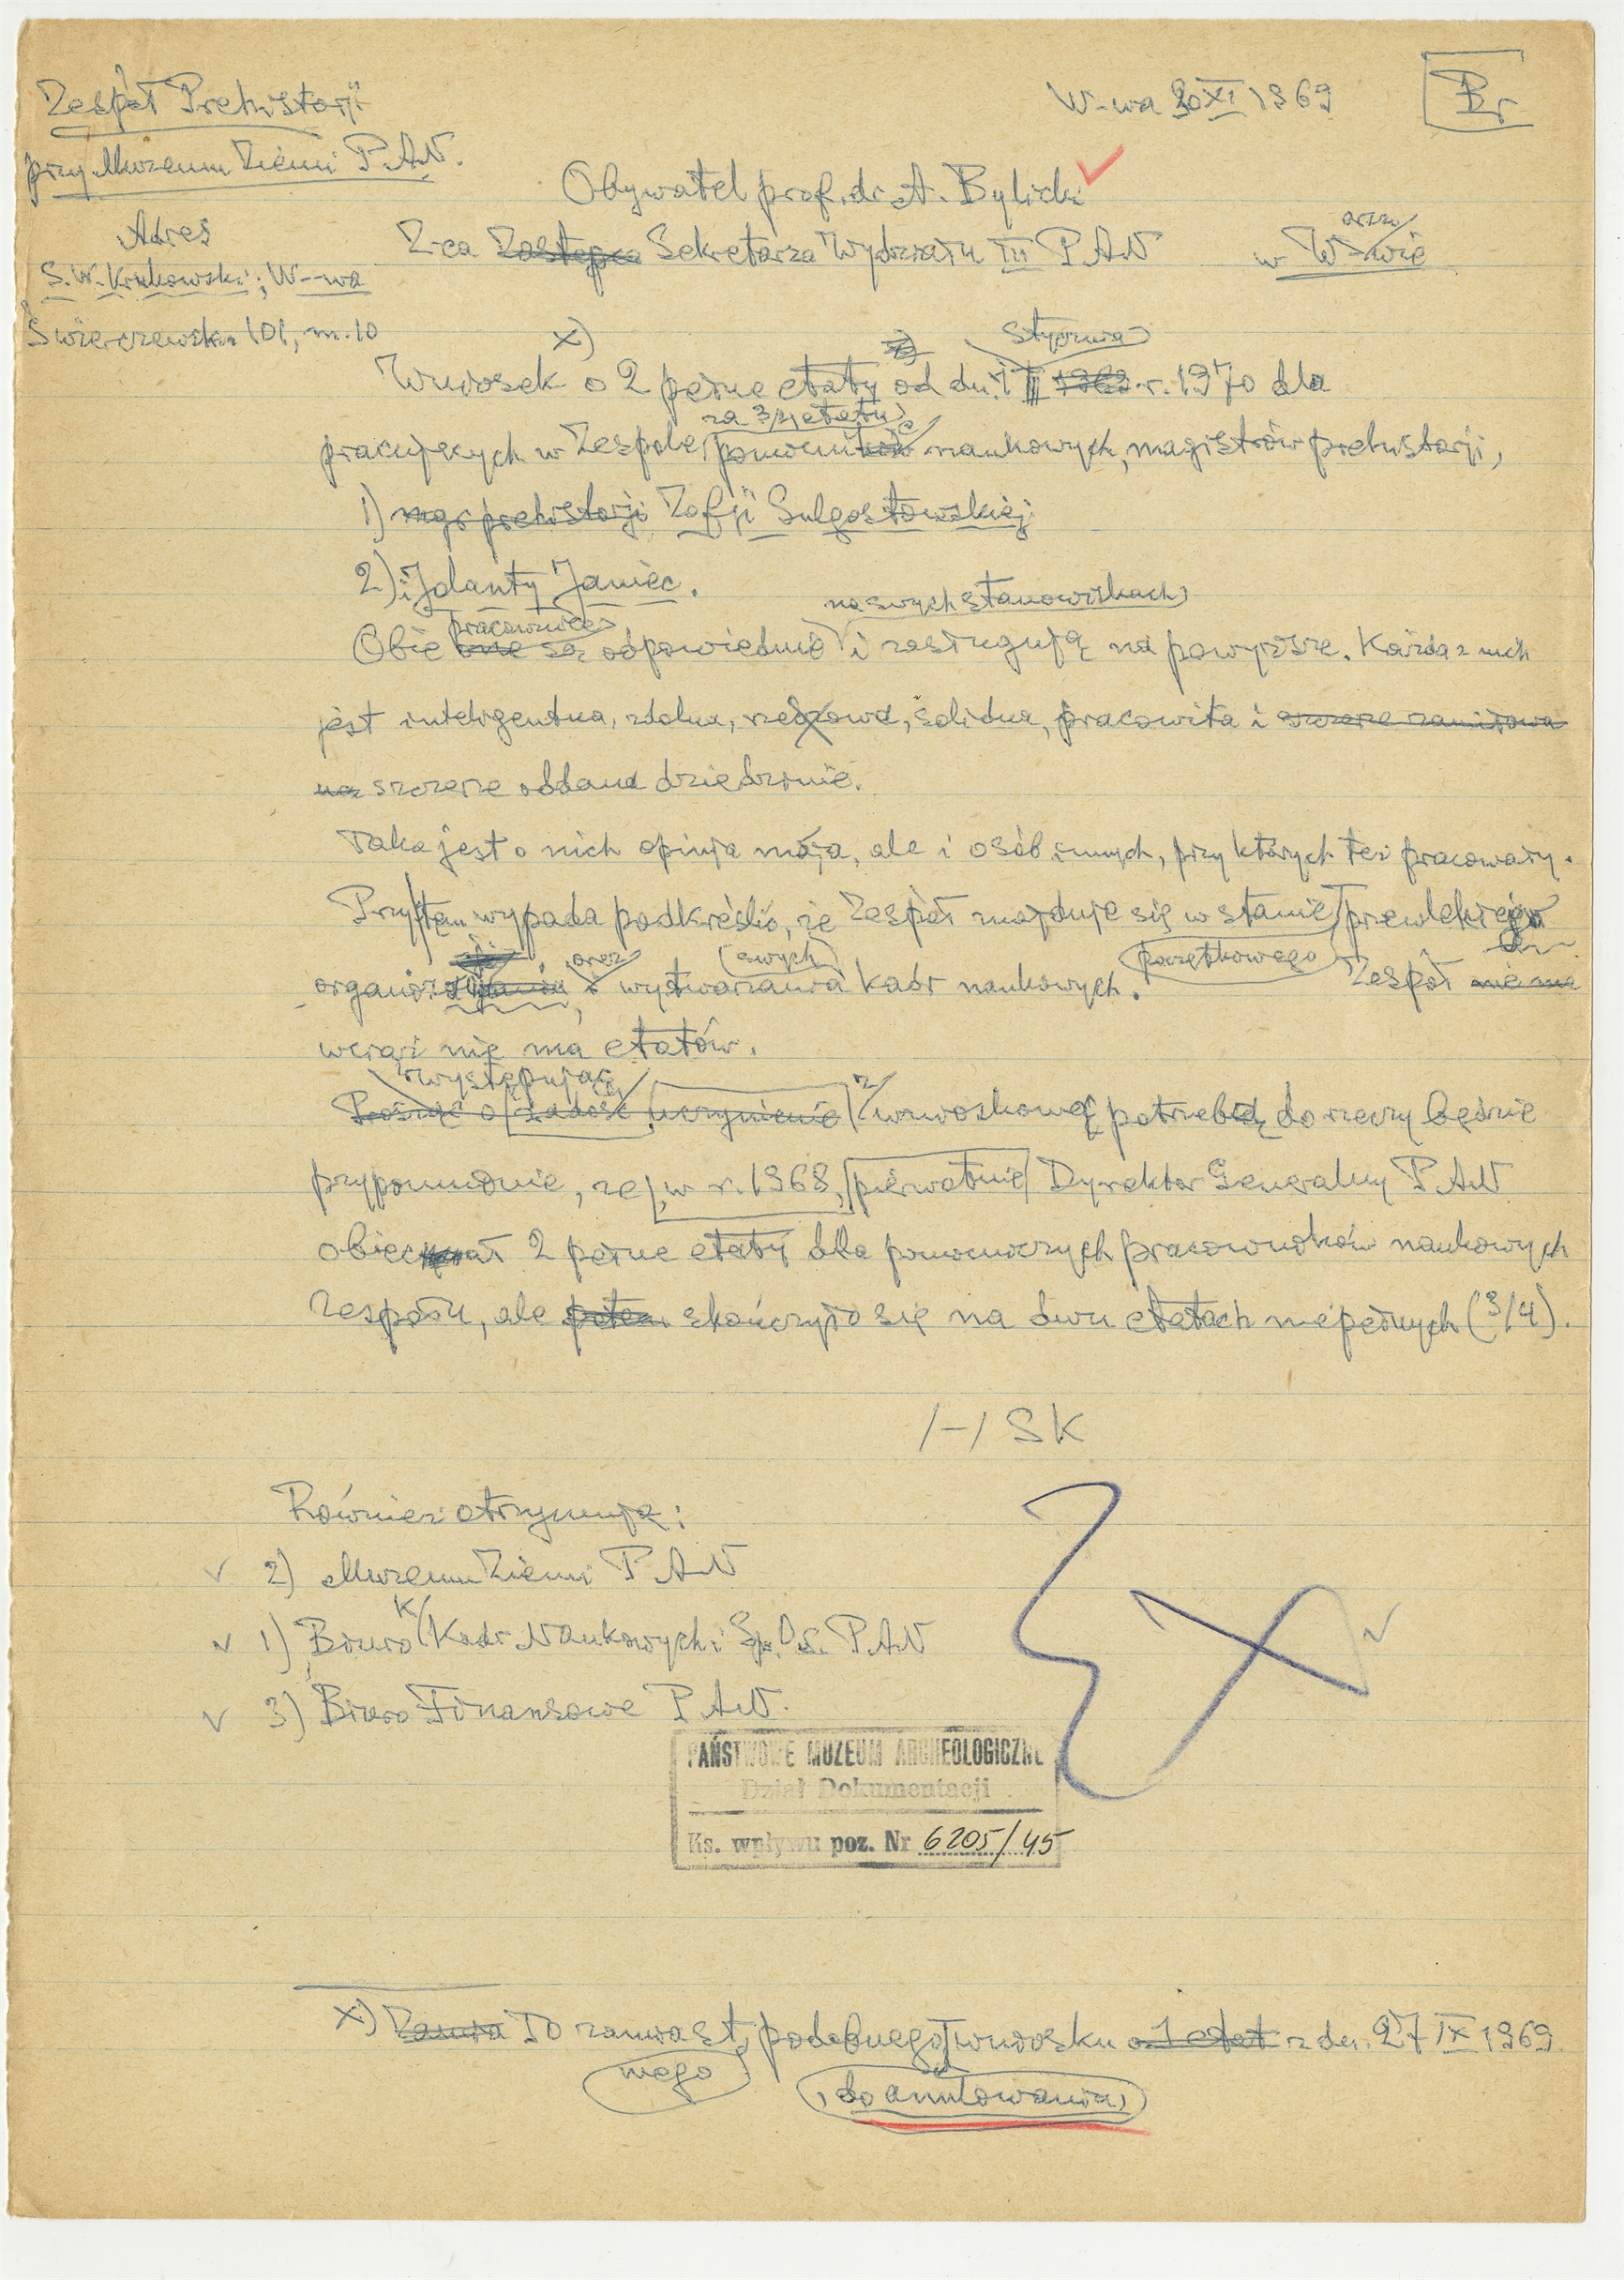 Zespół Prehistorji
przy Muzeum Ziemi P.A.N.
W-wa 20 XI 1969
Br
Obywatel prof. dr A. Bylicki
Z-ca Zastępca Sekretarza Wydziału III PAN
w W-wie
Adres
S. W. Krukowski; W-wa
Świerczewska 101, m. 10
x)
stycznia
Wniosek o 2 pełne etaty od dn. 1 III 1969 r. 1970 dla
za 3/4 etatu
pracujących w Zespole pomocników naukowych, magistrów prehistorji,
1) mgr prehistorji Zofji Sulgostowskiej
2) i Jolanty Janiec.
pracownice
na swych stanowiskach
Obie one są odpowiednie i zasługują na powyższe. Każda z nich
jest inteligentna, zdolna, rzeczowa, solidna, pracowita i szczerze zamiłowa
na szczerze oddana dziedzinie.
Taka jest o nich opinja moja, ale i osób innych, przy których też pracowały.
Przytem wypada podkreślić, że Zespół znajduje się w stanie przewlekłego
oraz
swych
początkowego
wytwarzania kadr naukowych. Zespół nie ma
wciąż nie ma etatów.
występując
Prosząc o zadość uczynienie z wnioskową potrzebą do rzeczy będzie
przypomnienie, że, w r. 1968, pierwotnie Dyrektor Generalny PAN
obiecał 2 pełne etaty dla pomocniczych pracowników naukowych
Zespołu, ale potem skończyło się na dwu etatach niepełnych (3/4).
/-/ SK
Również otrzymują:
2) Muzeum Ziemi PAN
K
1) Biuro Kadr Naukowych i Sp. Os. PAN
3) Biuro Finansowe PAN.
PAŃSTWOWE MUZEUM ARCHEOLOGICZNE
Dział Dokumentacji
Ks. wpływu poz. Nr 6205/45
x) Zamia To zamiast podobnego wniosku o 1 etat z dn. 27 IX 1969
mego
, do anulowania,